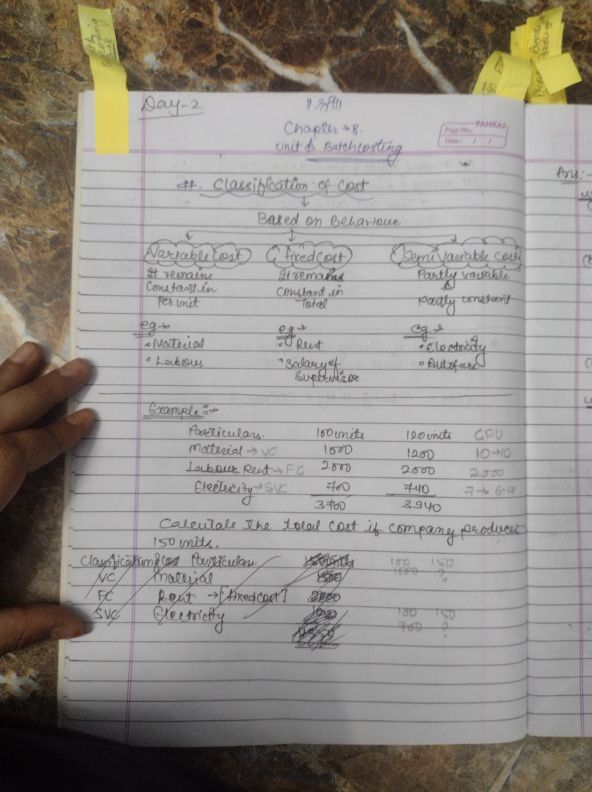 Day-2
Chapter → 8.
PANKAJ
Page No.:
Date: / /
Unit & Batch costing
#. Classification of Cost
Based on Behaviour
Variable Cost Fixed Cost Semi Variable Cost
It remains It remains Partly variable
Constant in Constant in &
Per unit Total Partly constant
eg → eg → eg →
• Material • Rent • Electricity
• Labour • Salary of • Autofare
Supervisor
Example :→
Particulars. 100 units 120 units CPU
Material → VC 1000 1200 10→10
Labour Rent → FC 2000 2000 2000
Electricity → SVC 700 740 7→
3700 3940
Calculate the total cost if company produces
150 units.
Classification Cost Particulars. 150 units 100 150
VC Material 1500 1000 ?
FC Rent → [fixed cost] 2000
SVC Electricity 100 150
700 ?
Ans:-